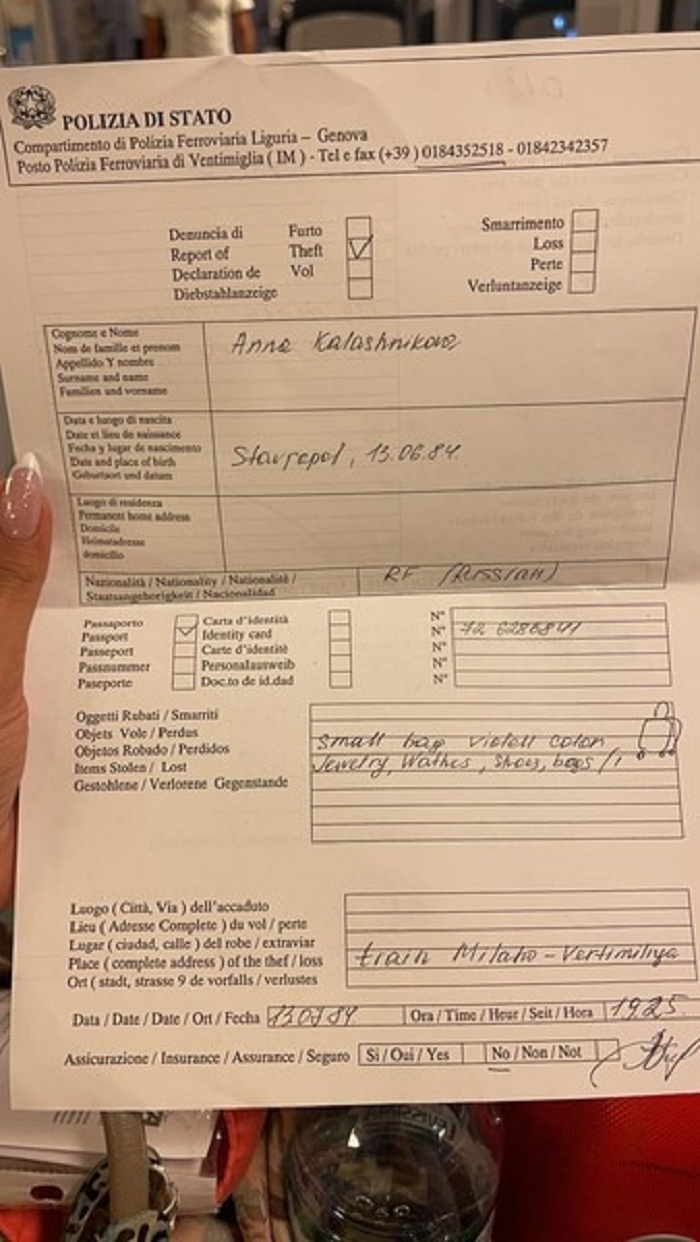 POLIZIA DI STATO
Compartimento di Polizia Ferroviaria Liguria – Genova
Posto Polizia Ferroviaria di Ventimiglia ( IM ) - Tel e fax (+39 ) 0184352518 - 01842342357
Denuncia di Furto
Report of Theft
Declaration de Vol
Diebstahlanzeige
Smarrimento
Loss
Perte
Verluntanzeige
Cognome e Nome
Nom de famille et prenom
Appellido Y nombre
Surname and name
Familien und vorname
Anna Kalashnikova
Data e luogo di nascita
Date et lieu de naissance
Fecha y lugar de nascimento
Date and place of birth
Geburtsort und datum
Stavropol, 13.06.84
Luogo di residenza
Permanent home address
Domicile
Heimatadresse
domicilio
Nazionalità / Nationality / Nationalité /
Staatsangehorigkeit / Nacionalidad
RF (Russian)
Passaporto
Passport
Passeport
Passnummer
Paseporte
Carta d'identità
Identity card
Carte d'identité
Personalausweib
Doc.to de id.dad
N°
N° 72 6286841
N°
N°
N°
Oggetti Rubati / Smarriti
Objets Vole / Perdus
Objetos Robado / Perdidos
Items Stolen / Lost
Gestohlene / Verlorene Gegenstande
small bag violett color
Jewelry, Wathes, Shoes, bags
Luogo ( Città, Via ) dell'accaduto
Lieu ( Adresse Complete ) du vol / perte
Lugar ( ciudad, calle ) del robe / extraviar
Place ( complete address ) of the thef / loss
Ort ( stadt, strasse 9 de vorfalls / verlustes
train Milano - Vertimiliya
Data / Date / Date / Ort / Fecha
Ora / Time / Heur / Seit / Hora 1925
Assicurazione / Insurance / Assurance / Seguro Si / Oui / Yes No / Non / Not